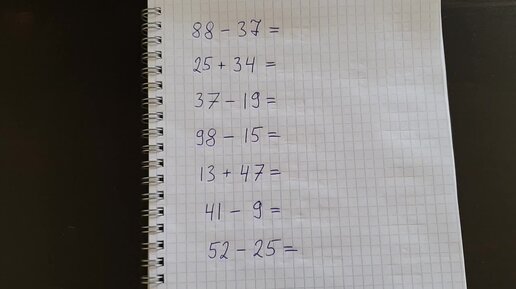 88 - 37 =
25 + 34 =
37 - 19 =
98 - 15 =
13 + 47 =
41 - 9 =
52 - 25 =